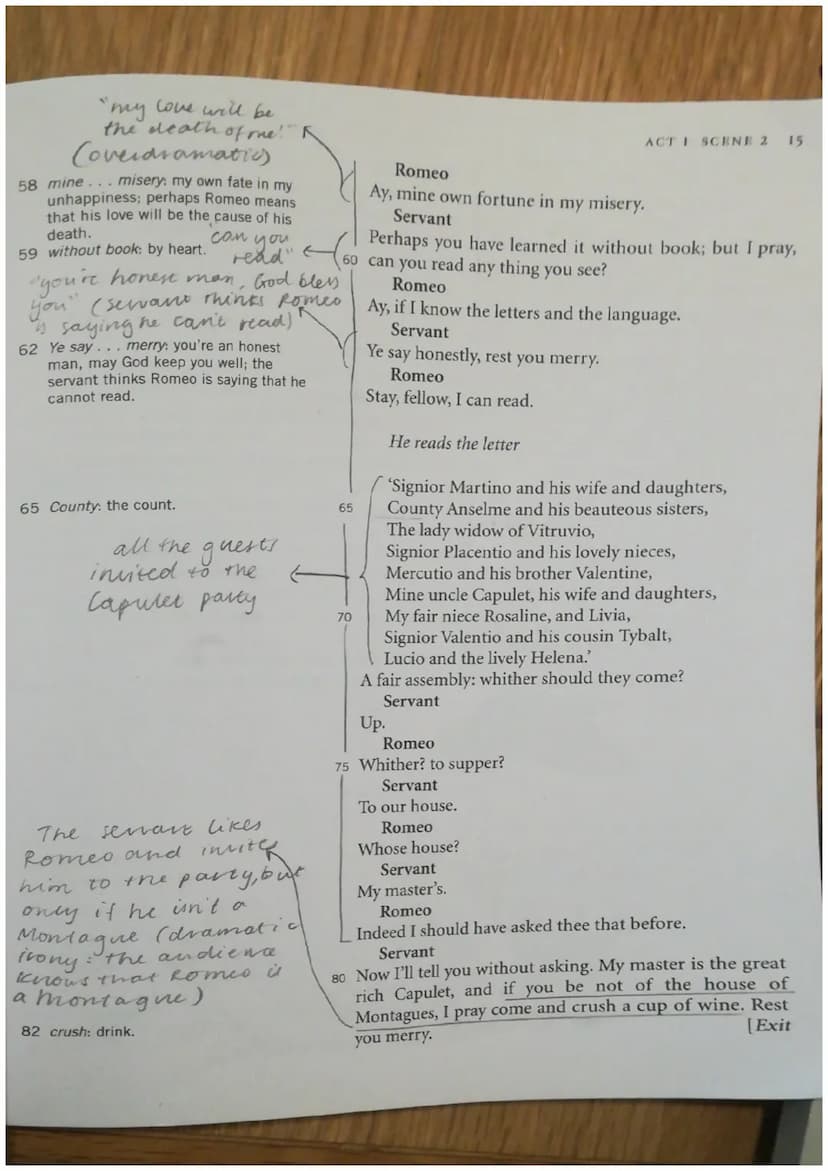 ACT I SCENE 2 15
"my love will be
the death of me!"
(overdramatic)
58 mine . . . misery: my own fate in my
unhappiness; perhaps Romeo means
that his love will be the cause of his
death.
"can you
read"
59 without book: by heart.
"you're honest man, God bless
you" (servant thinks Romeo
is saying he can't read)
62 Ye say . . . merry: you're an honest
man, may God keep you well; the
servant thinks Romeo is saying that he
cannot read.
65 County: the count.
all the guests
invited to the
Capulet party
The servant likes
Romeo and invites
him to the party, but
only if he isn't a
Montague (dramatic
irony: the audience
knows that Romeo is
a Montague)
82 crush: drink.
Romeo
Ay, mine own fortune in my misery.
Servant
Perhaps you have learned it without book; but I pray,
60 can you read any thing you see?
Romeo
Ay, if I know the letters and the language.
Servant
Ye say honestly, rest you merry.
Romeo
Stay, fellow, I can read.
He reads the letter
'Signior Martino and his wife and daughters,
65 County Anselme and his beauteous sisters,
The lady widow of Vitruvio,
Signior Placentio and his lovely nieces,
Mercutio and his brother Valentine,
Mine uncle Capulet, his wife and daughters,
70 My fair niece Rosaline, and Livia,
Signior Valentio and his cousin Tybalt,
Lucio and the lively Helena.'
A fair assembly: whither should they come?
Servant
Up.
Romeo
75 Whither? to supper?
Servant
To our house.
Romeo
Whose house?
Servant
My master's.
Romeo
Indeed I should have asked thee that before.
Servant
80 Now I'll tell you without asking. My master is the great
rich Capulet, and if you be not of the house of
Montagues, I pray come and crush a cup of wine. Rest
you merry. [Exit